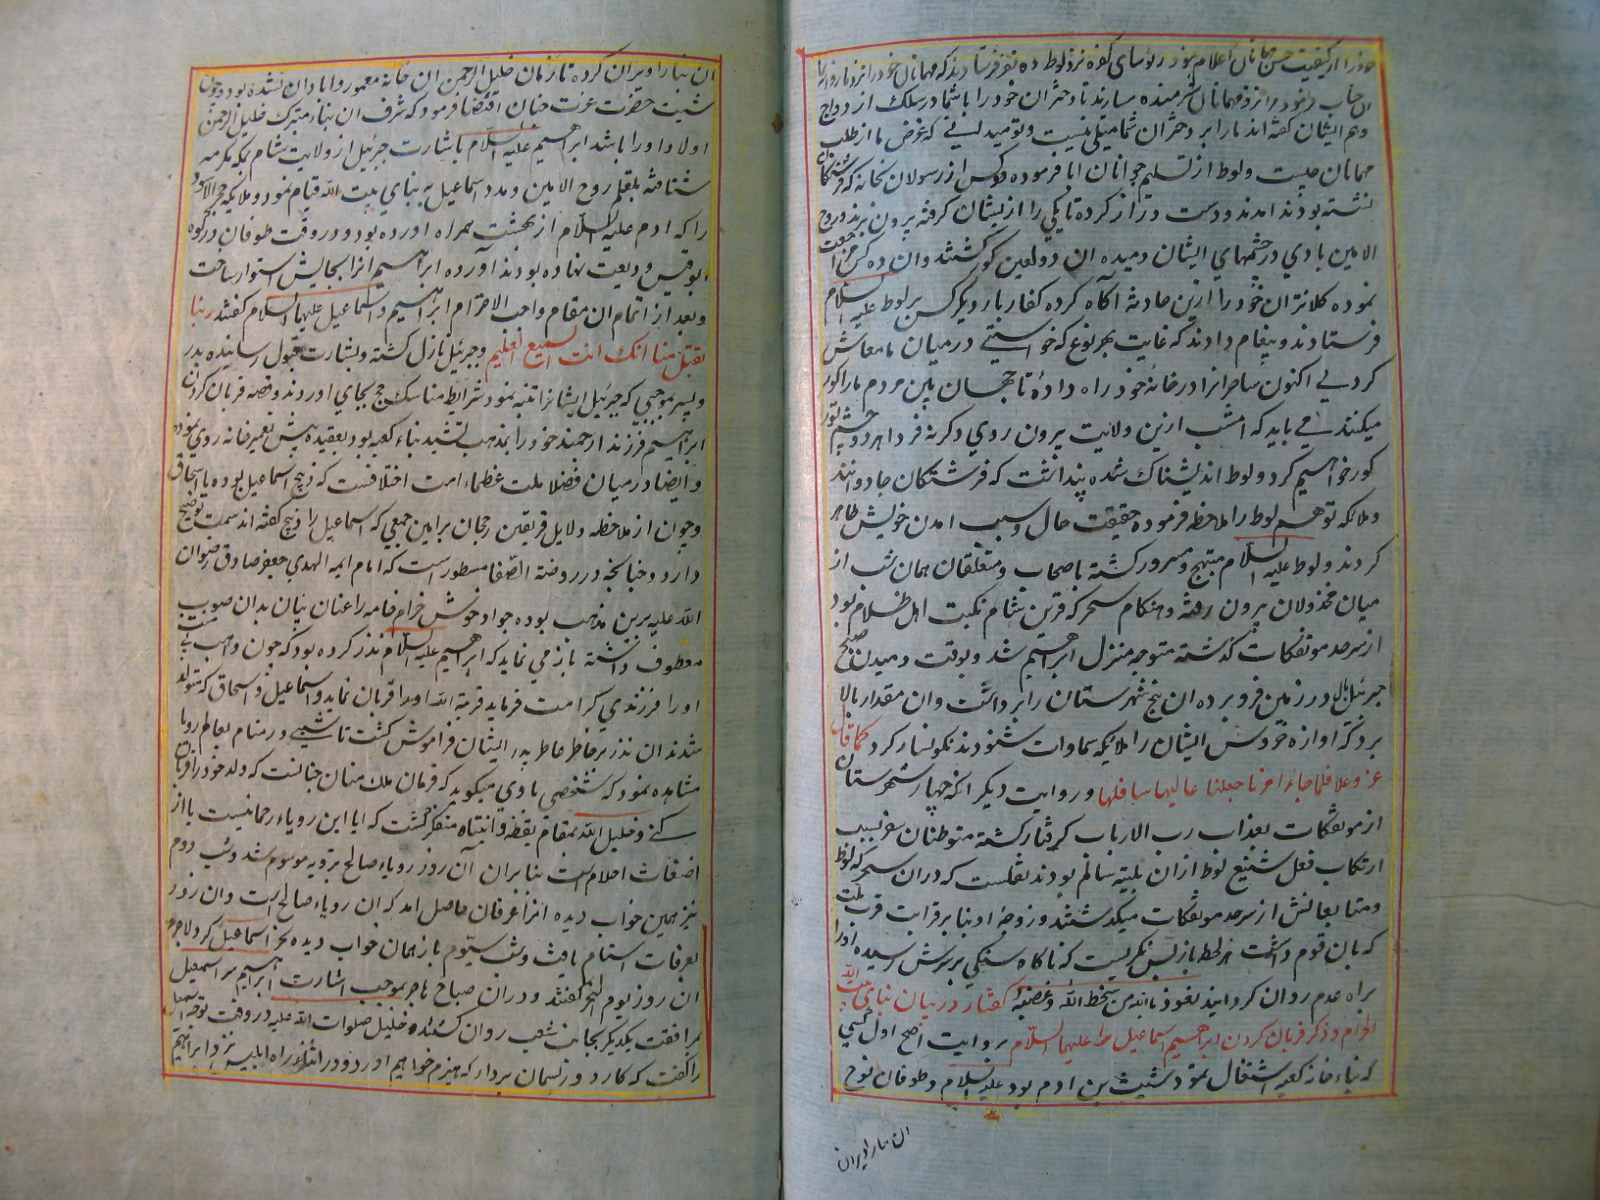 خود را از کیفیت حسن مهمانان اعلام نمود رؤسای کفره نزد لوط ده نفر فرستادند که مهمانان خود را نزد ما روانه
ان جناب نمود مهمانان شرمنده سازند تا دختران خود را با شما در سلک ازدواج
وهم ایشان گفته اند ما را بر دختران شما میلی نیست و تو میدانی که غرض ما از طلب
مهمانان چیست و لوط از تسلیم جوانان ابا فرموده دو کس از رسولان بخانه که فرشتگان
نشسته بودند امدند و دست دراز کرده تا یکی را از ایشان گرفته بیرون برند و روح
الامین بادی در چشمهای ایشان دمیده ان دو لعین کور گشتند و ان ده کس مراجعت
نموده کلانتران خود را ازین حادثه آگاه کرده کفار بار دیگر کس بر لوط علیه السلام
فرستادند و پیغام دادند که غایت بهر نوع که خواستی در میان ما معاش
کردی اکنون ساحرانرا در خانهٔ خود راه دادهٔ تا جهان بین مردم ما را کور
میکنند می باید که امشب ازین ولایت بیرون روی و کرنه فردا هر دو چشم تو
کور خواهیم کرد و لوط اندیشناک شده پنداشت که فرشتگان جادوانند
و ملائکه توهم لوط را ملاحظه فرموده حقیقت حال و سبب امدن خویش ظاهر
کردند و لوط علیه السلام مبتهج و مسرور گشته با صحاب و متعلقان همان شب از
میان مخذولان بیرون رفته و هنکام سحر که قرین شام نکبت اهل ظلام بود
از سرحد موتفکات گذشته متوجه منزل ابراهیم شد و بوقت دمیدن صبح
جبرئیل بال در زمین فرو برده ان پنج شهرستان را برداشت و ان مقدار بالا
برد که اوازه خروس ایشان را ملایکه سماوات شنودند نکونسار کرد کما قال
عز و علا فلما جاء امرنا جعلنا عالیها سافلها و روایت دیگر انکه چهار شهرستان
از موتفکات بعذاب رب الارباب گرفتار گشته متوطنان سبب
ارتکاب فعل شنیع لوط ازان بلیّه سالم بودند نقلست که دران سحر که لوط
و متابعانش از سرحد موتفکات میکذشتند و زوجهٔ او بنا بر قرابت قرب ملت
که بان قوم داشت هر لحظه باز پس نکریست که ناکاه سنگی بر سرش رسیده او را
براه عدم روان کردانید نعوذ بالله من سخط الله و غضبه گفتار در بیان بنای بیت الله
الحرام و ذکر قربان کردن ابراهیم اسماعیل را علیهما السلام بروایت اصح اول کسی
که ببناء خانه کعبه اشتغال نمود شیث بن ادم بود علیه السلام و طوفان نوح
ان بنا را ویران
ان بنا را ویران کرده تا زمان خلیل الرحمن ان خانه معمور و ابادان نشده بود و چون
مشیت حضرت عزت چنان اقتضا فرمود که شرف ان بناء متبرک خلیل الرحمن
اولاد او را باشد ابراهیم علیه السلام باشارت جبرئیل از ولایت شام بمکه مکرمه
شتافته بتعلیم روح الامین و مدد اسماعیل به بنای بیت الله قیام نمود و ملائکه حجر الاسود
را که ادم علیه السلام از بهشت همراه اورده بود و در وقت طوفان در کوه
بوقبیس ودیعت نهاده بودند آورده ابراهیم انرا بجایش استوار ساخت
و بعد از اتمام ان مقام واجب الاحترام ابراهیم و اسماعیل علیهما السلام گفتند ربنا
تقبل منا انک انت السمیع العلیم و جبرئیل نازل گشته و بشارت قبول رسانیده پدر
و پسر بموجبی که جبرئیل ایشانرا تنبه نمود شرایط مناسک حج بجای اوردند و قصه قربان کردن
ابراهیم فرزند ارجمند خود را بمذهب تشیید بناء کعبه بود بعقیده پیش تعمیر خانه روی نموده
و ایضا در میان فضلا ملت عظماء امت اختلافست که ذبیح اسماعیل بوده یا اسحاق
و چون از ملاحظه دلایل فریقین رجحان برامین جمعی که اسماعیل را ذبیح گفته اند سمت توضیح
دارد و چنانچه در روضة الصفا مسطور است که امام ایمه الهدی جعفر صادق رضوان
الله علیه برین مذهب بوده جواد خوش خرام خامه را عنان بیان بدان صوب
معطوف داشته باز می نماید که ابراهیم علیه السلام نذر کرده بود که چون واهب بی منت
او را فرزندی کرامت فرماید قربة الله او را قربان نماید و اسماعیل و اسحاق که متولد
شدند ان نذر بر خاطر عاطر پدر ایشان فراموش گشت تا شبی در منام بعالم رویا
مشاهده نمود که شخصی با وی میکوید که فرمان ملک منان چنانست که ولد خود را قربان
کنی و خلیل الله بمقام یقظه و انتباه متفکر گشت که ایا این رویاء رحمانیست یا از
اضغاث احلام است بنا بران آن روز رویاء صالح بترویه موسوم شد و شب دوم
نیز همین خواب دیده انرا عرفان حاصل امد که ان رویاء صالح است و ان روز
بعرفات استنام یافت و شب سیّوم باز همان خواب دیده نحر اسماعیل کرد لاجرم
ان روز یوم النحر گفتند و دران صباح هاجر بموجب اشارت ابراهیم سر اسمعیل
مرافقت یکدیکر بجانب شعب روان گشته و خلیل صلوات الله علیه در وقت توجه
را گفت که کارد و ریسمان بردار که هیزم خواهیم اورد و در اثناء راه ابلیس نزد ابراهیم